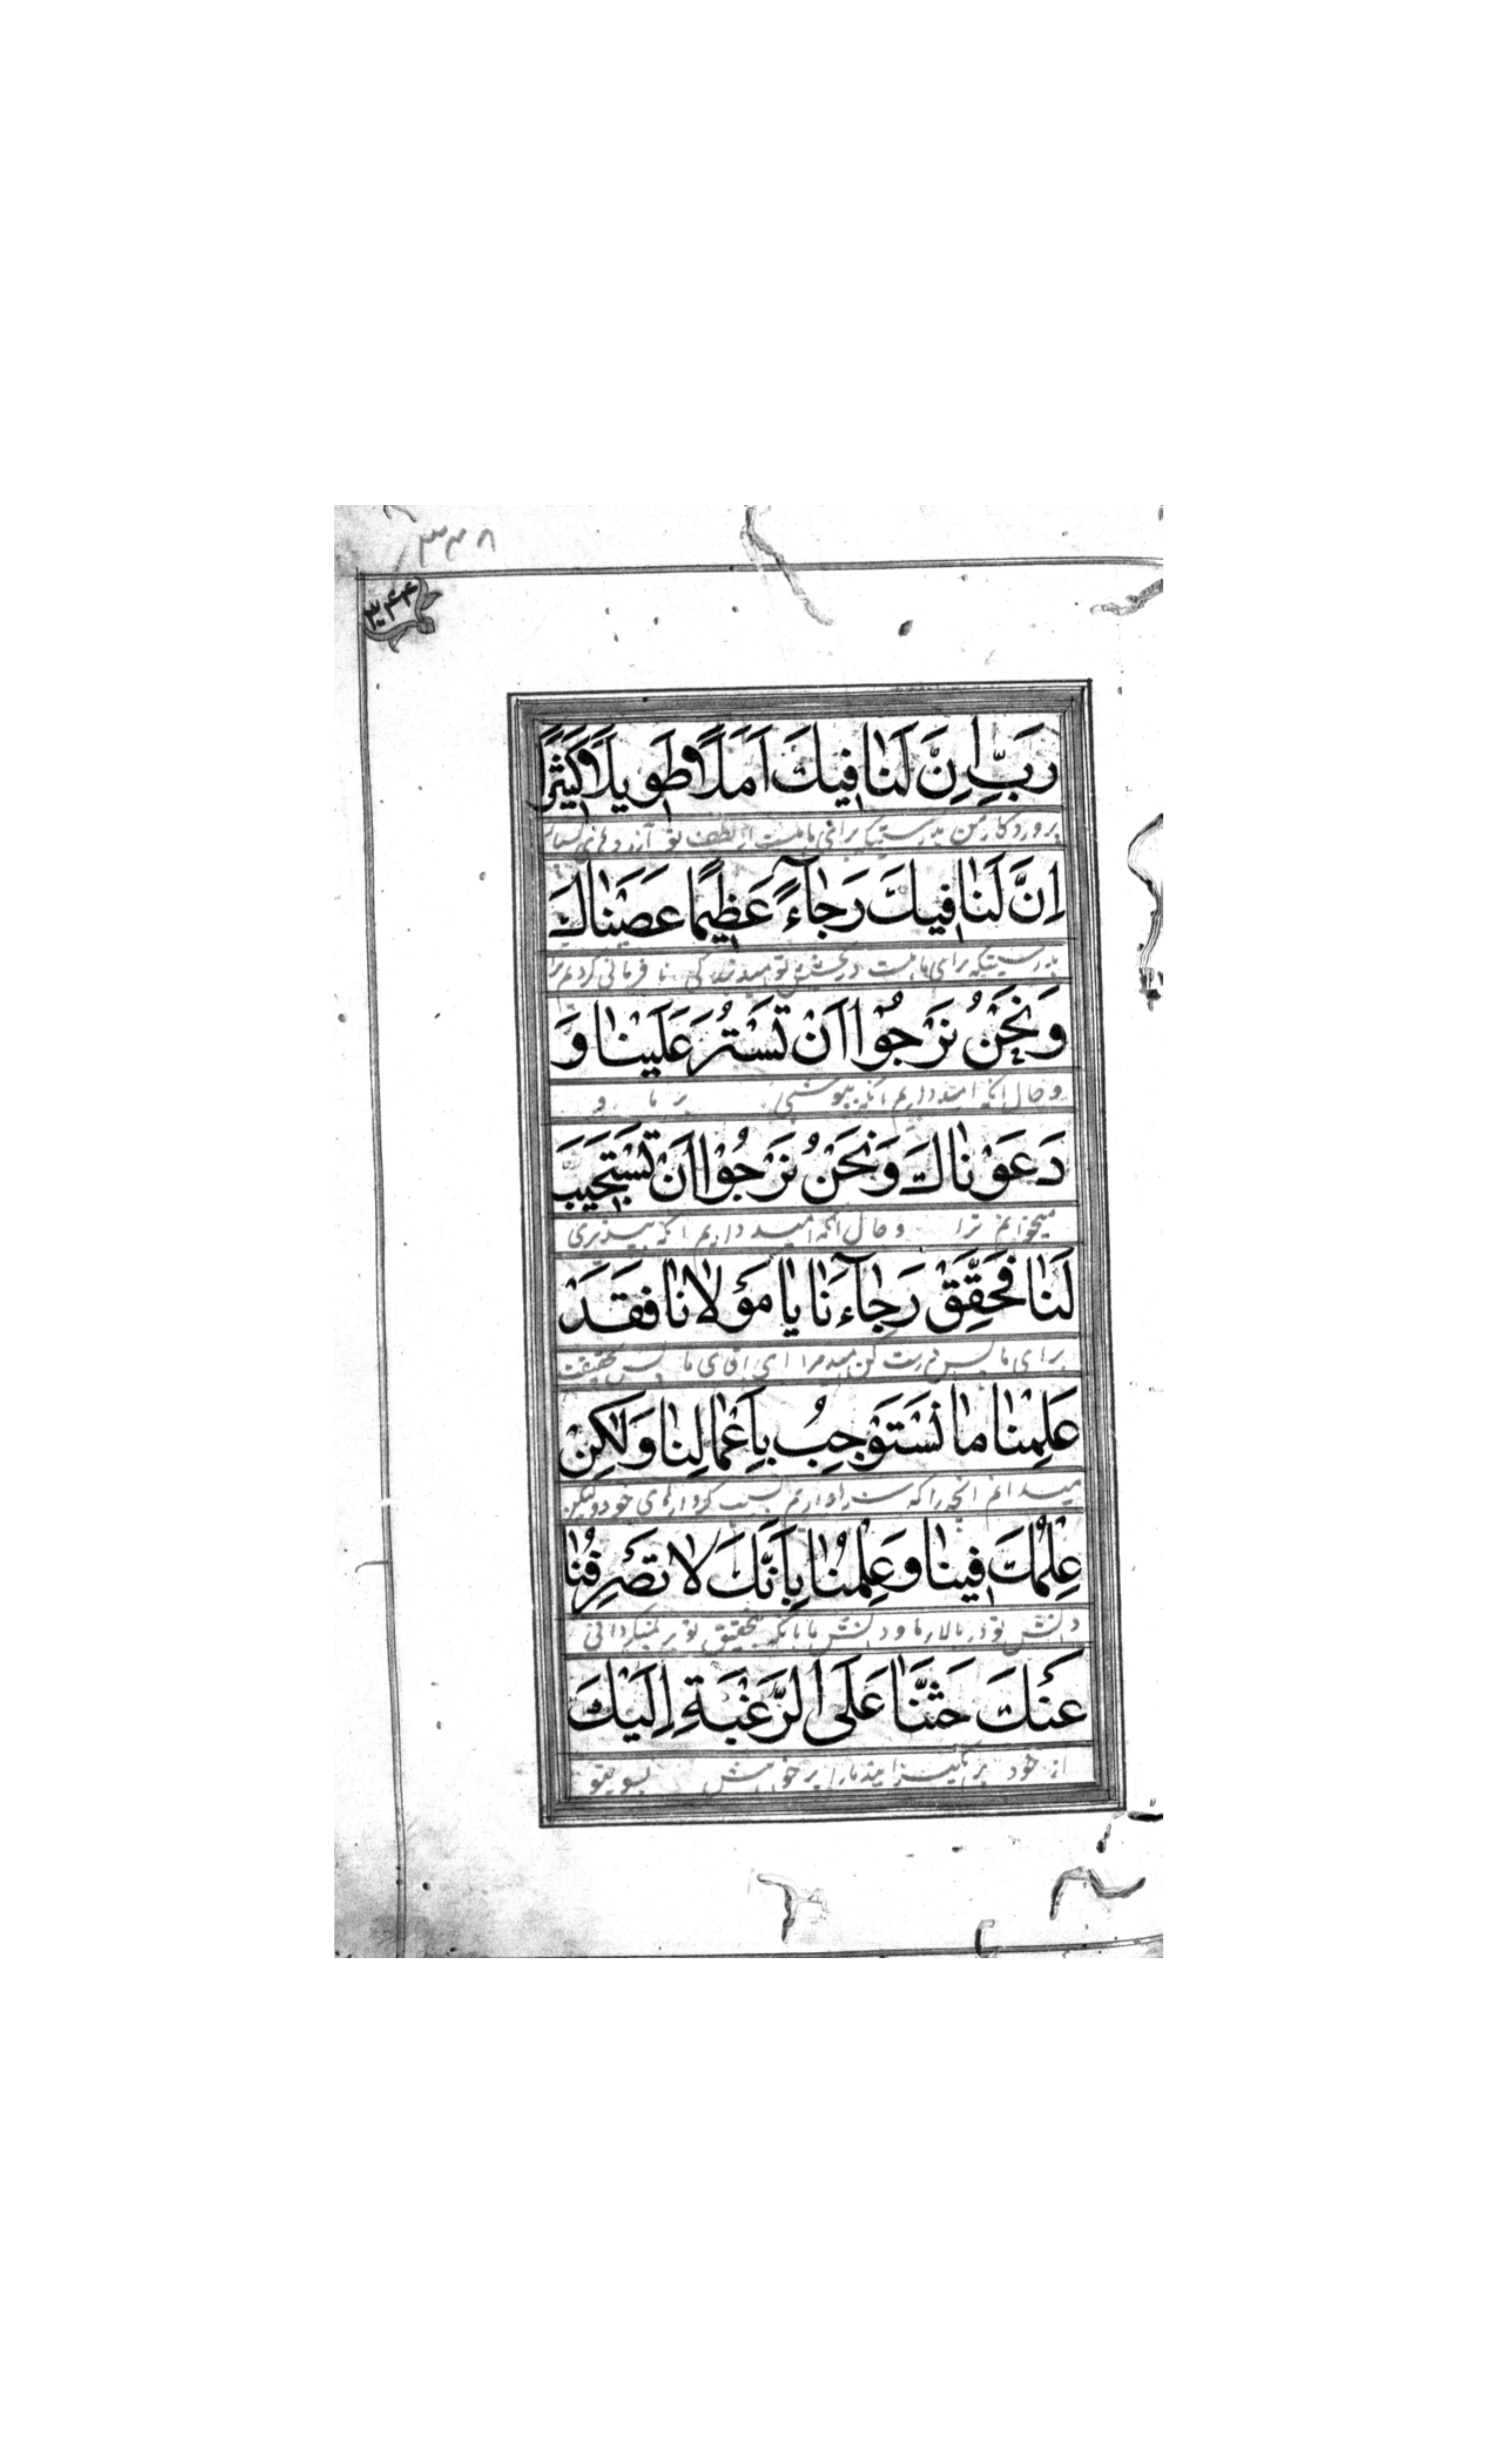 ۳۳۸
۳۴۴
رَبِّ اِنَّ لَنا فيكَ اَمَلًا طَويلًا كَثيرًا
پروردکار من بدرستیکه برای ما هست از لطف تو آرزوهای
اِنَّ لَنا فيكَ رَجآءً عَظيمًا عَصَيْناكَ
بدرستیکه برای ما هست در بخشش تو امید نا فرمانی کردیم ترا
وَنَحْنُ نَرْجُوا اَنْ تَسْتُرَ عَلَيْنا وَ
و حال انکه امید داریم انکه بپوشی بر ما و
دَعَوْناكَ وَنَحْنُ نَرْجُوا اَنْ تَسْتَجيبَ
میخوانیم ترا و حال انکه امید داریم انکه بپذیری
لَنا فَحَقِّقْ رَجآءَنا يا مَوْلانا فَقَدْ
برای ما پس درست کن امید مرا ای اقای ما پس بحقیقت
عَلِمْنا ما نَسْتَوْجِبُ بِاَعْمالِنا وَلكِنْ
میدانیم انچه را که سزاواریم بسبب کردارهای خود ولیکن
عِلْمُكَ فينا وَعِلْمُنا بِاَنَّكَ لا تَصْرِفُنا
دانش تو در ما و دانش ما بانکه بتحقیق تو بر نمیکردانی
عَنْكَ حَثَّنا عَلَى الرَّغْبَةِ اِلَيْكَ
از خود بر انکیزانید ما را بر خواهش بسوی تو